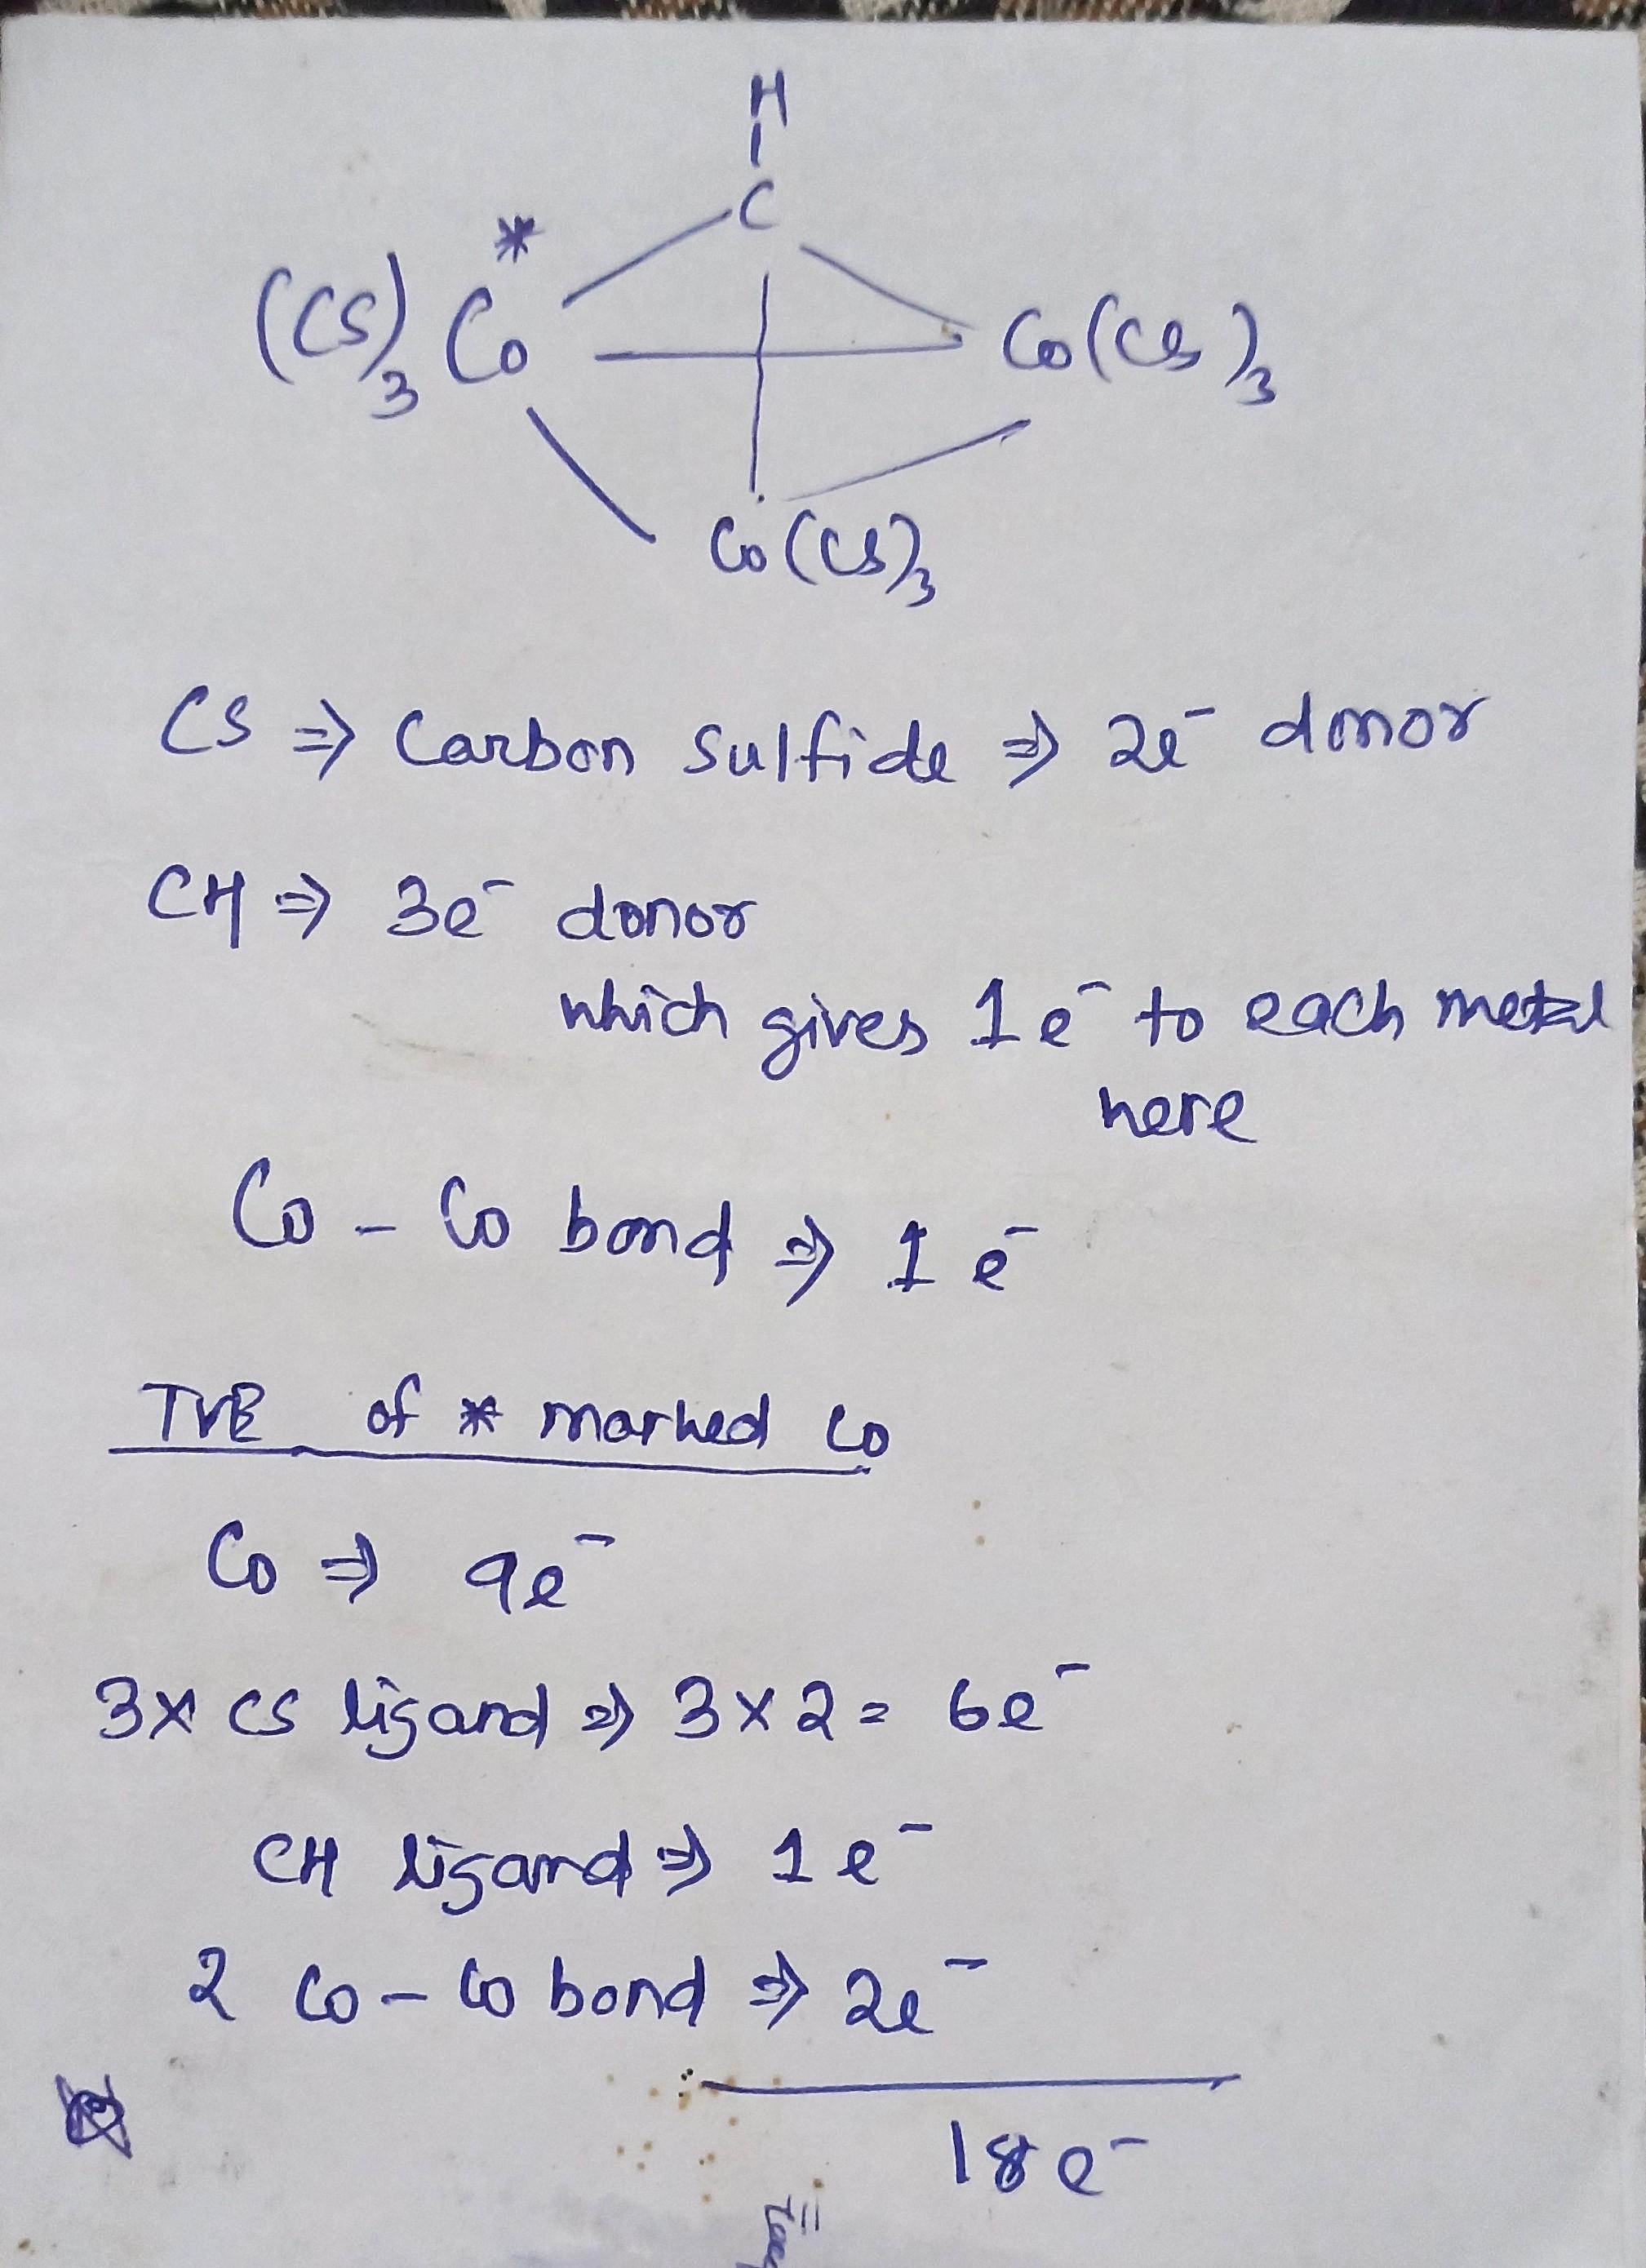 H
C
*
(CS)3 Co
Co(CS)3
Co(CS)3
CS ⇒ Carbon Sulfide ⇒ 2e⁻ donor
CH ⇒ 3e⁻ donor
which gives 1e⁻ to each metal
here
Co - Co bond ⇒ 1e⁻
TVE of * marked Co
Co ⇒ 9e⁻
3x CS ligand ⇒ 3 x 2 = 6e⁻
CH ligand ⇒ 1e⁻
2 Co - Co bond ⇒ 2e⁻
18e⁻